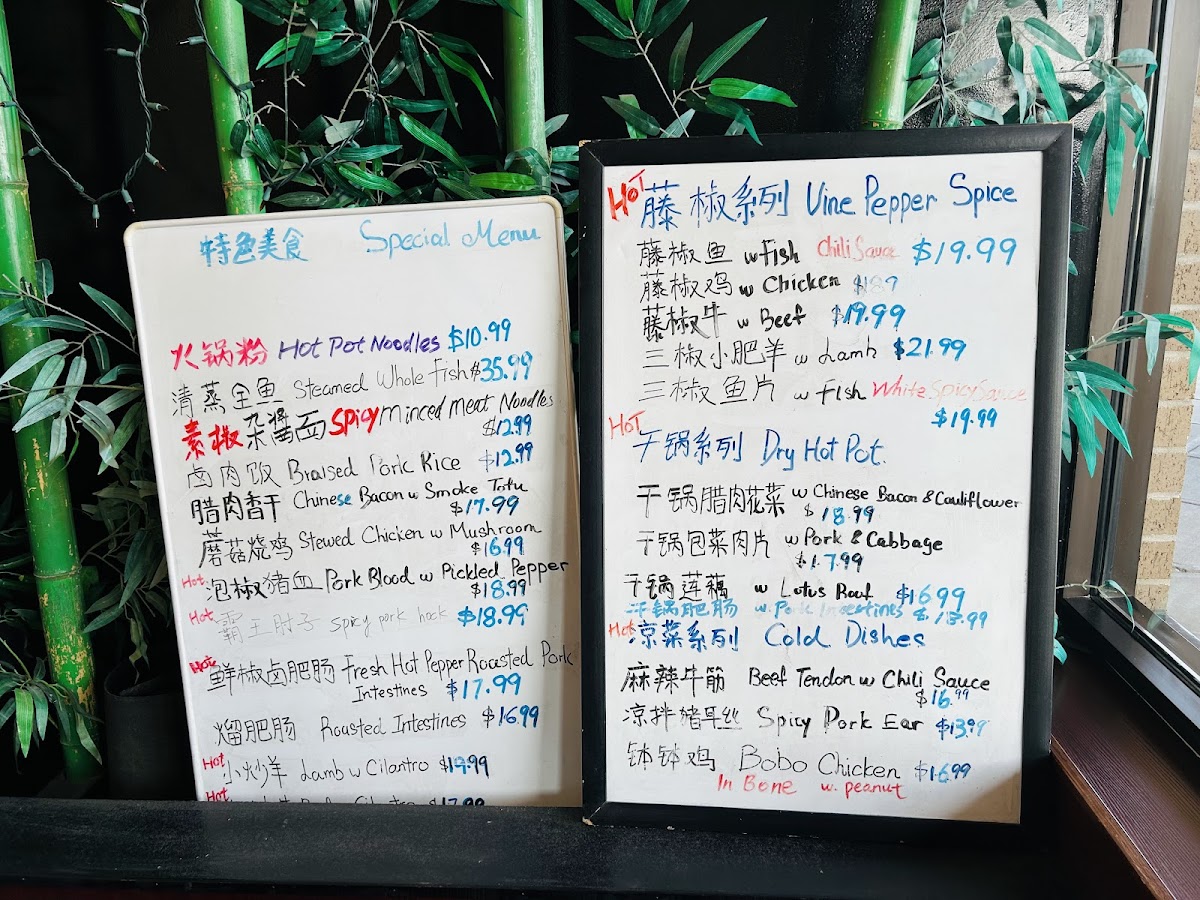 特色美食 Special Menu
火锅粉 Hot Pot Noodles $10.99
清蒸全鱼 Steamed Whole Fish $35.99
素椒杂酱面 Spicy Minced Meat Noodles
$12.99
卤肉饭 Braised Pork Rice $12.99
腊肉香干 Chinese Bacon w Smoke Tofu
$17.99
蘑菇烧鸡 Stewed Chicken w Mushroom
$16.99
Hot 泡椒猪血 Pork Blood w Pickled Pepper
$18.99
Hot 霸王肘子 spicy pork hock $18.99
Hot 鲜椒卤肥肠 Fresh Hot Pepper Roasted Pork
Intestines $17.99
熘肥肠 Roasted Intestines $16.99
Hot 小炒羊 Lamb w Cilantro $19.99
Hot
HOT 藤椒系列 Vine Pepper Spice
藤椒鱼 w Fish Chili Sauce $19.99
藤椒鸡 w Chicken
藤椒牛 w Beef $19.99
三椒小肥羊 w Lamb $21.99
三椒鱼片 w Fish White Spicy Sauce
$19.99
HOT
干锅系列 Dry Hot Pot.
干锅腊肉花菜 w Chinese Bacon & Cauliflower
$18.99
干锅包菜肉片 w Pork & Cabbage
$17.99
干锅莲藕 w Lotus Root $16.99
干锅肥肠 w. Pork Intestines
Hot 凉菜系列 Cold Dishes
麻辣牛筋 Beef Tendon w Chili Sauce
$16.99
凉拌猪耳丝 Spicy Pork Ear $13.99
钵钵鸡 Bobo Chicken $16.99
In Bone w. peanut